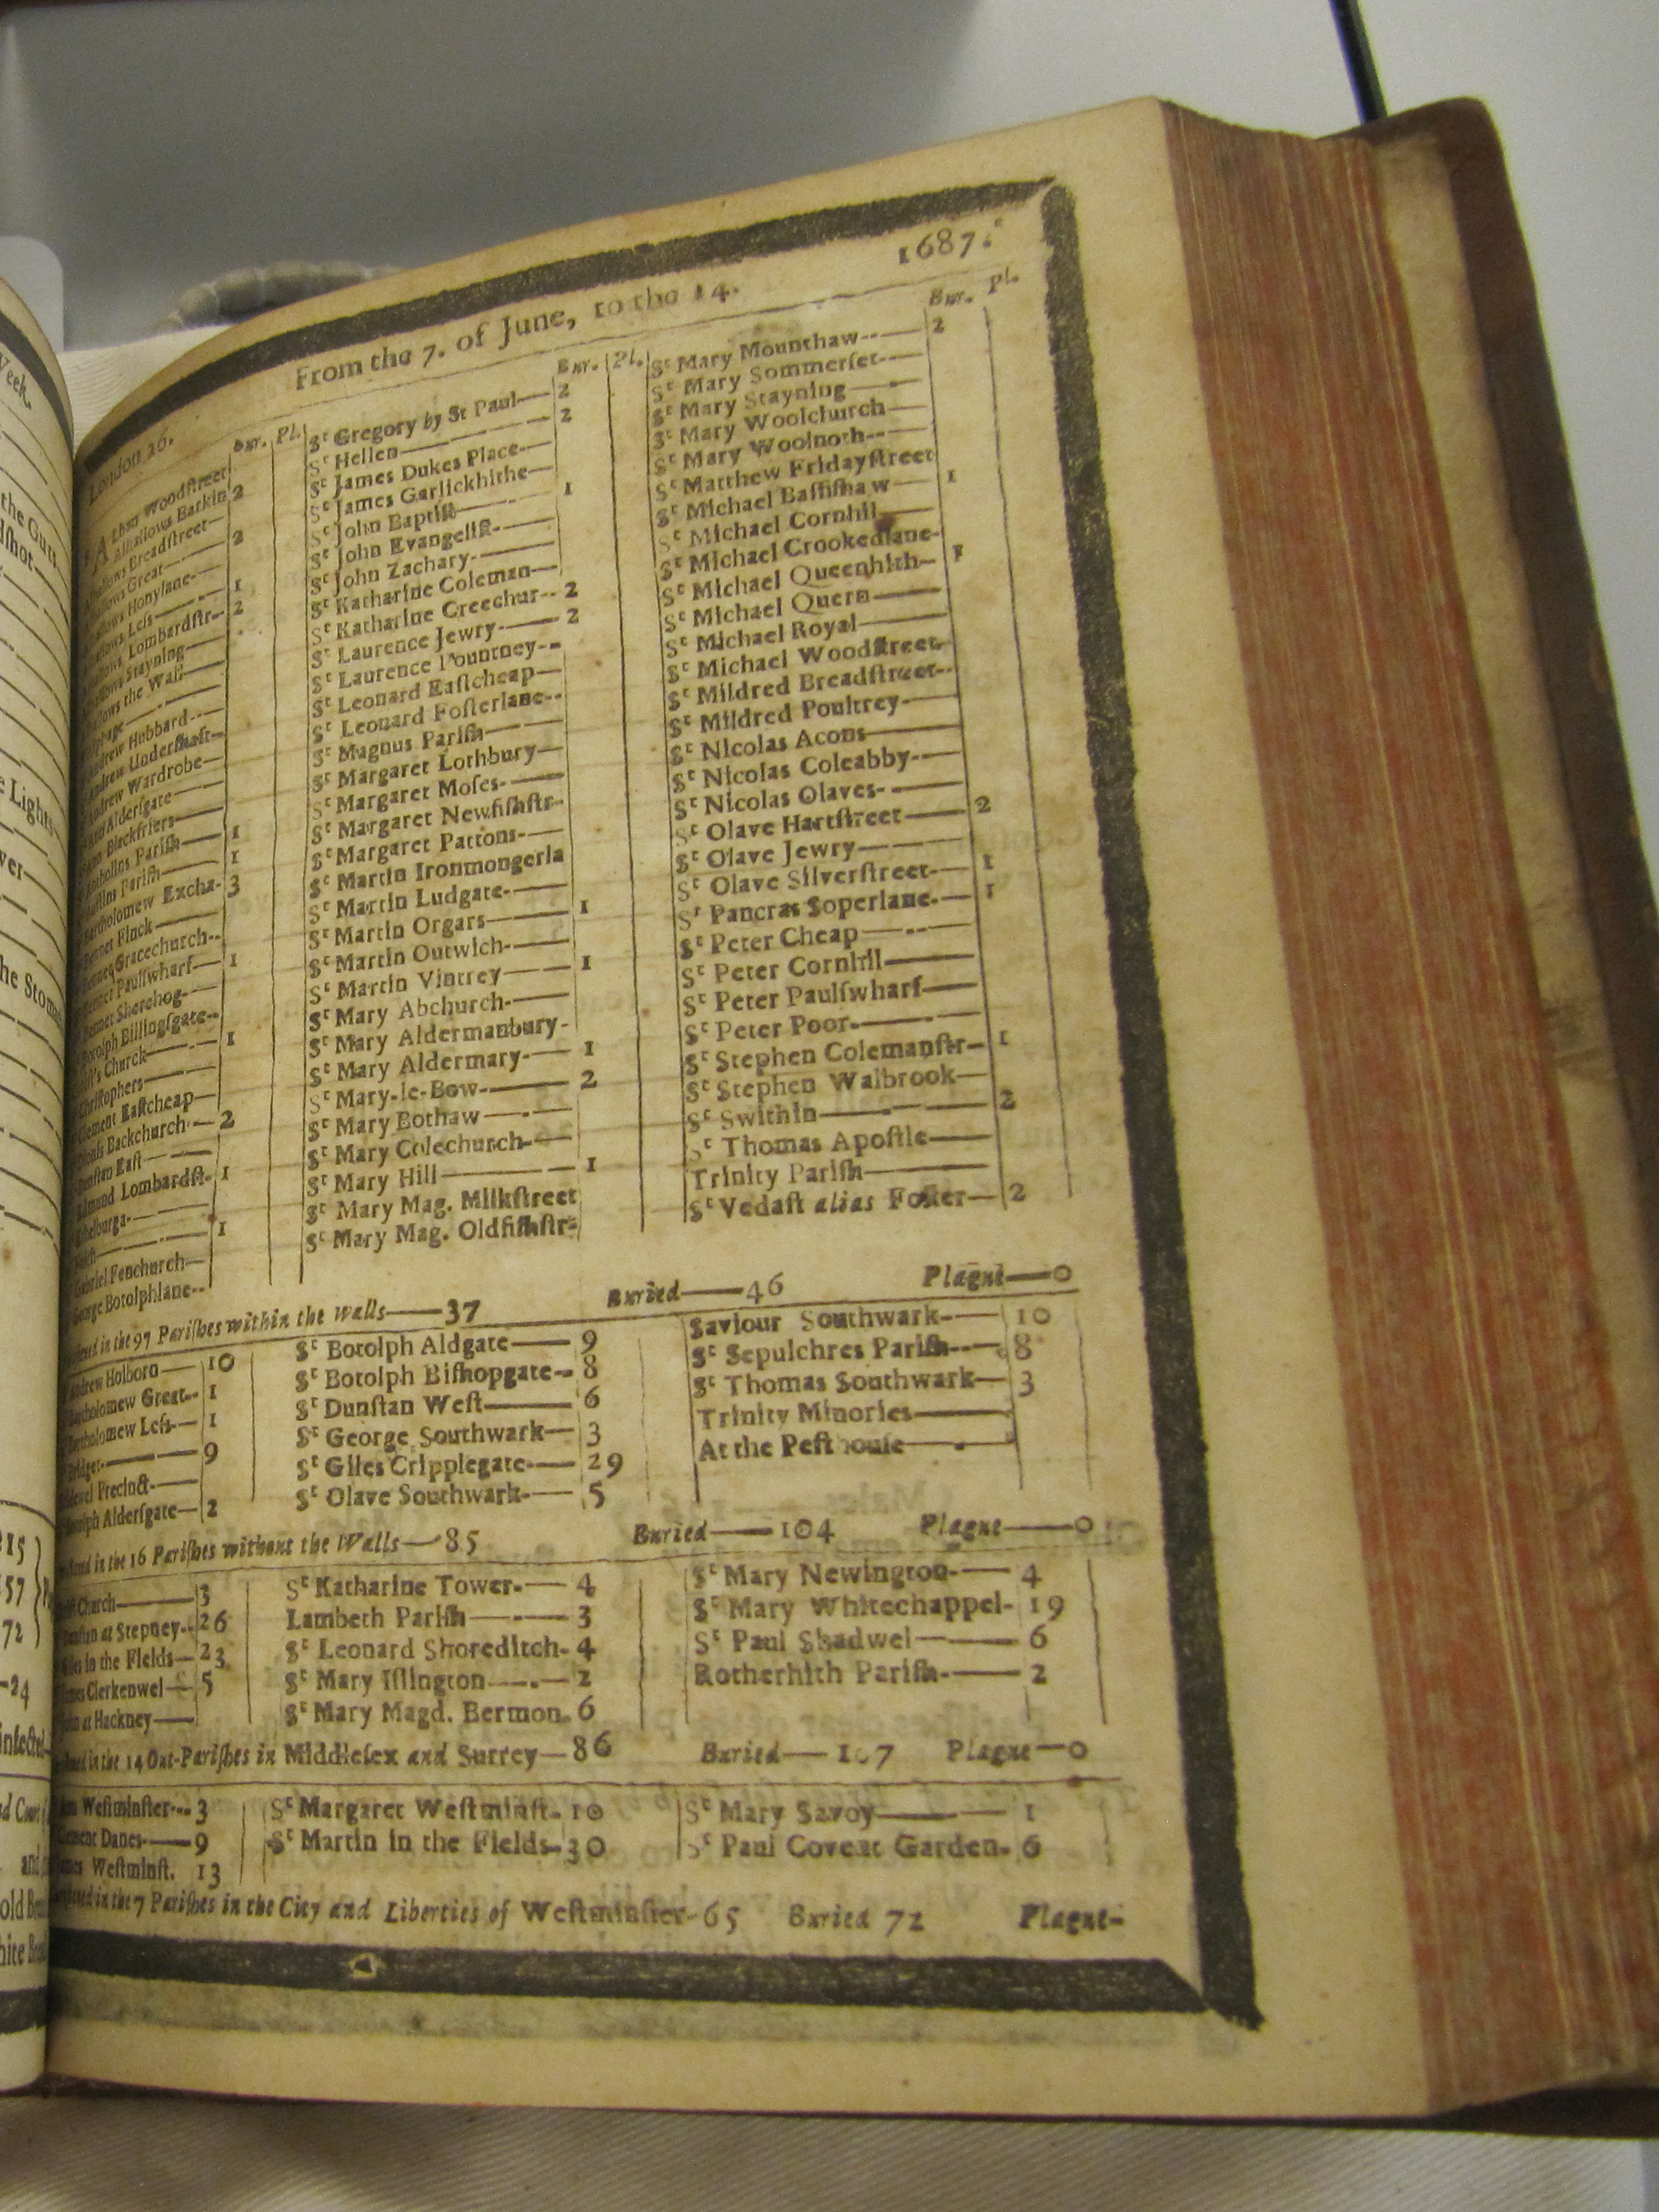 London 26.
From the 7. of June, to the 14.
1687.
Bur. Pl.
Alban Woodſtreet
Alhallows Barkin 2
Breadſtreet—
Great— 2
Honylane—
Leſs— 1
Lombardſtr-- 2
Stayning—
the Wall—
Hubbard---
Underſhaft--
Wardrobe—
Alderſgate—
Blackfriers—
Pariſh— 1
Pariſh— 1
Bartholomew Excha- 3
Finck—
Gracechurch--
Paulſwharf— 1
Sherehog-—
Botolph Billingſgate--
Church— 1
Chriſtophers—
Clement Eaſtcheap—
Backchurch— 2
Dunſtan Eaſt—
Edmund Lombardſt- 1
Ethelburga-—
— 1
Gabriel Fenchurch—
George Botolphlane--
Bur. Pl.
Sᵗ Gregory by St Paul— 2
Sᵗ Hellen— 2
Sᵗ James Dukes Place—
Sᵗ James Garlickhithe—
Sᵗ John Baptiſt— 1
Sᵗ John Evangeliſt—
Sᵗ John Zachary-—
Sᵗ Katharine Coleman—
Sᵗ Katharine Creechur-- 2
Sᵗ Laurence Jewry-— 2
Sᵗ Laurence Pountney--
Sᵗ Leonard Eaſtcheap—
Sᵗ Leonard Foſterlane--
Sᵗ Magnus Pariſh—
Sᵗ Margaret Lothbury—
Sᵗ Margaret Moſes-—
Sᵗ Margaret Newfiſhſtr-
Sᵗ Margaret Pattons-—
Sᵗ Martin Ironmongerla
Sᵗ Martin Ludgate-—
Sᵗ Martin Orgars— 1
Sᵗ Martin Outwich-—
Sᵗ Martin Vintrey— 1
Sᵗ Mary Abchurch-—
Sᵗ Mary Aldermanbury-
Sᵗ Mary Aldermary-— 1
Sᵗ Mary-le-Bow-— 2
Sᵗ Mary Bothaw—
Sᵗ Mary Colechurch-—
Sᵗ Mary Hill— 1
Sᵗ Mary Mag. Milkſtreet
Sᵗ Mary Mag. Oldfiſhſtr-
Bur. Pl.
Sᵗ Mary Mounthaw--— 2
Sᵗ Mary Sommerſet-—
Sᵗ Mary Stayning—
Sᵗ Mary Woolchurch—
Sᵗ Mary Woolnoth--—
Sᵗ Matthew Fridayſtreet
Sᵗ Michael Baſſiſhaw— 1
Sᵗ Michael Cornhil—
Sᵗ Michael Crookedlane-
Sᵗ Michael Queenhith— 1
Sᵗ Michael Quern—
Sᵗ Michael Royal—
Sᵗ Michael Woodſtreet-
Sᵗ Mildred Breadſtreet--
Sᵗ Mildred Poultrey-—
Sᵗ Nicolas Acons—
Sᵗ Nicolas Coleabby-—
Sᵗ Nicolas Olaves-—
Sᵗ Olave Hartſtreet— 2
Sᵗ Olave Jewry—
Sᵗ Olave Silverſtreet-— 1
Sᵗ Pancras Soperlane-— 1
Sᵗ Peter Cheap—
Sᵗ Peter Cornhil—
Sᵗ Peter Paulſwharf—
Sᵗ Peter Poor-—
Sᵗ Stephen Colemanſtr— 1
Sᵗ Stephen Walbrook—
Sᵗ Swithin— 2
Sᵗ Thomas Apoſtle—
Trinity Pariſh—
Sᵗ Vedaſt alias Foſter— 2
in the 97 Pariſhes within the walls—37 Buried—46 Plague—0
Andrew Holborn— 10
Bartholomew Great-- 1
Bartholomew Leſs— 1
Bridget-— 9
Precinct-—
Botolph Alderſgate— 2
Sᵗ Botolph Aldgate— 9
Sᵗ Botolph Biſhopgate-- 8
Sᵗ Dunſtan Weſt— 6
Sᵗ George Southwark— 3
Sᵗ Giles Cripplegate-— 29
Sᵗ Olave Southwark-— 5
Saviour Southwark-— 10
Sᵗ Sepulchres Pariſh-— 8
Sᵗ Thomas Southwark— 3
Trinity Minories—
At the Peſthouſe—
in the 16 Pariſhes without the Walls—85 Buried—104 Plague—0
Church— 3
Dunſtan at Stepney-- 26
in the Fields— 23
Clerkenwel— 5
at Hackney—
Sᵗ Katharine Tower-— 4
Lambeth Pariſh— 3
Sᵗ Leonard Shoreditch- 4
Sᵗ Mary Iſlington— 2
Sᵗ Mary Magd. Bermon- 6
Sᵗ Mary Newington-— 4
Sᵗ Mary Whitechappel- 19
Sᵗ Paul Shadwel— 6
Rotherhith Pariſh-— 2
in the 14 Out-Pariſhes in Middleſex and Surrey—86 Buried—107 Plague—0
Weſtminſter-- 3
Clement Danes-— 9
James Weſtminſt. 13
Sᵗ Margaret Weſtminſt- 10
Sᵗ Martin in the Fields- 30
Sᵗ Mary Savoy— 1
Sᵗ Paul Covent Garden- 6
in the 7 Pariſhes in the City and Liberties of Weſtminſter-65 Buried 72 Plague-